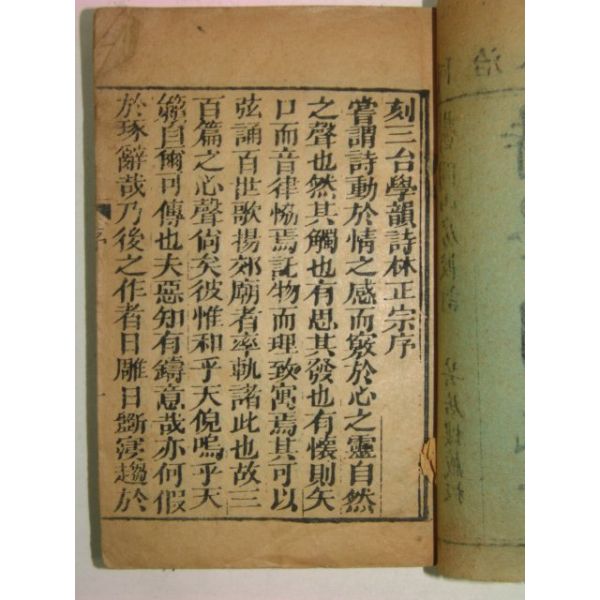 刻三台學韻詩林正宗序
嘗謂詩動於情之感而竅於心之靈自然
之聲也然其觸也有思其發也有懷則矢
口而音律恊焉託物而理致寓焉其可以
弦誦百世歌揚郊廟者率執諸此也故三
百篇之心聲尙矣彼惟和乎天倪鳴乎天
籟自爾可傳也夫惡知有鑄意哉亦何假
於琢辭哉乃後之作者日雕日斵寖趨於
序